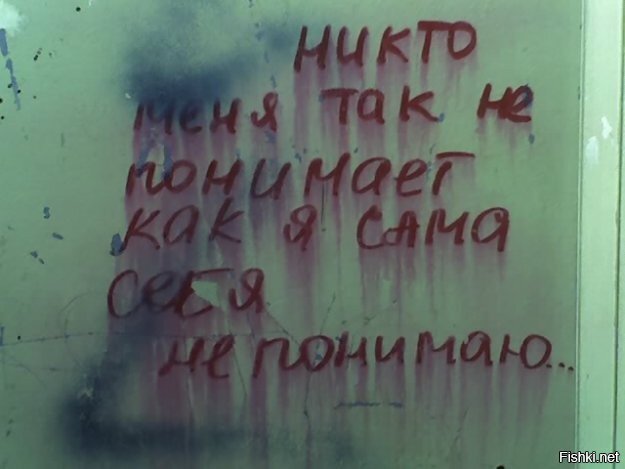 никто
меня так не
понимает
как я сама
себя
не понимаю...
Fishki.net